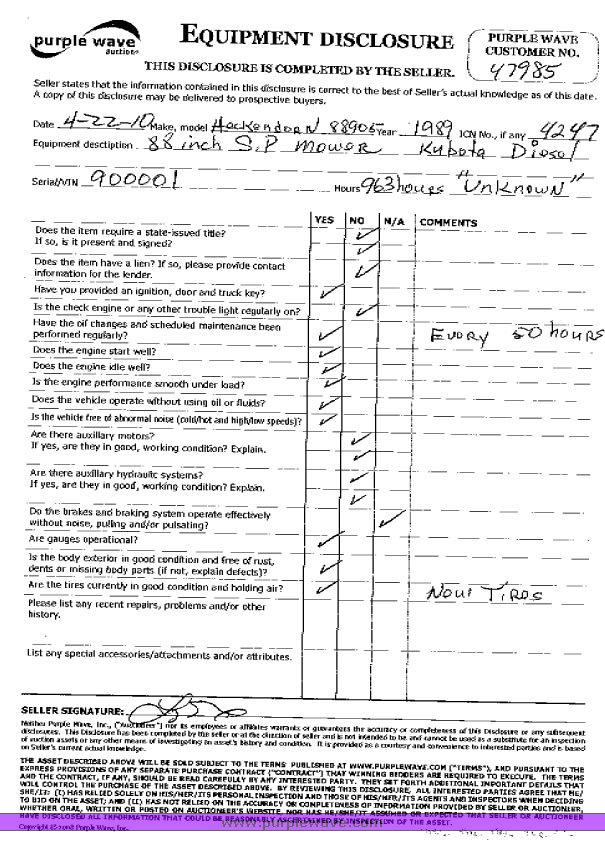 purple wave
auction
EQUIPMENT DISCLOSURE
THIS DISCLOSURE IS COMPLETED BY THE SELLER.
PURPLE WAVE
CUSTOMER NO.
47985
Seller states that the information contained in this disclosure is correct to the best of Seller's actual knowledge as of this date.
A copy of this disclosure may be delivered to prospective buyers.
Date 4-22-10 Make, model HackendorN 88905 Year 1989 ICN No., if any 4247
Equipment desctiption 88 inch S.P mower Kubota Diesel
Serial/VIN 900001 Hours 963 hours "UnKNOWN"
YES NO N/A COMMENTS
Does the item require a state-issued title?
If so, is it present and signed?
Does the item have a lien? If so, please provide contact
information for the lender.
Have you provided an ignition, door and truck key?
Is the check engine or any other trouble light regularly on?
Have the oil changes and scheduled maintenance been
performed regularly? Every 50 hours
Does the engine start well?
Does the engine idle well?
Is the engine performance smooth under load?
Does the vehicle operate without using oil or fluids?
Is the vehicle free of abnormal noise (cold/hot and high/low speeds)?
Are there auxiliary motors?
If yes, are they in good, working condition? Explain.
Are there auxiliary hydraulic systems?
If yes, are they in good, working condition? Explain.
Do the brakes and braking system operate effectively
without noise, pulling and/or pulsating?
Are gauges operational?
Is the body exterior in good condition and free of rust,
dents or missing body parts (if not, explain defects)?
Are the tires currently in good condition and holding air? New Tires
Please list any recent repairs, problems and/or other
history.
List any special accessories/attachments and/or attributes.
SELLER SIGNATURE:
Neither Purple Wave, Inc., ("Auctioneer") nor its employees or affiliates warrants or guarantees the accuracy or completeness of this Disclosure or any subsequent
disclosures. This Disclosure has been completed by the seller or at the direction of seller and is not intended to be and cannot be used as a substitute for an inspection
of auction assets or any other means of investigating an asset's history and condition. It is provided as a courtesy and convenience to interested parties and is based
on Seller's current actual knowledge.
THE ASSET DESCRIBED ABOVE WILL BE SOLD SUBJECT TO THE TERMS PUBLISHED AT WWW.PURPLEWAVE.COM ("TERMS"), AND PURSUANT TO THE
EXPRESS PROVISIONS OF ANY SEPARATE PURCHASE CONTRACT ("CONTRACT") THAT WINNING BIDDERS ARE REQUIRED TO EXECUTE. THE TERMS
AND THE CONTRACT, IF ANY, SHOULD BE READ CAREFULLY BY ANY INTERESTED PARTY. THEY SET FORTH ADDITIONAL IMPORTANT DETAILS THAT
WILL CONTROL THE PURCHASE OF THE ASSET DESCRIBED ABOVE. BY REVIEWING THIS DISCLOSURE, ALL INTERESTED PARTIES AGREE THAT HE/
SHE/IT: (I) HAS RELIED SOLELY ON HIS/HER/ITS PERSONAL INSPECTION AND THOSE OF HIS/HER/ITS AGENTS AND INSPECTORS WHEN DECIDING
TO BID ON THE ASSET; AND (II) HAS NOT RELIED ON THE ACCURACY OR COMPLETENESS OF INFORMATION PROVIDED BY SELLER OR AUCTIONEER,
WHETHER ORAL, WRITTEN OR POSTED ON AUCTIONEER'S WEBSITE, NOR HAS HE/SHE/IT ASSUMED OR EXPECTED THAT SELLER OR AUCTIONEER
HAVE DISCLOSED ALL INFORMATION THAT COULD BE REASONABLY ASCERTAINED BY INSPECTION OF THE ASSET.
www.purplewave.com
Copyright ©2008 Purple Wave, Inc.